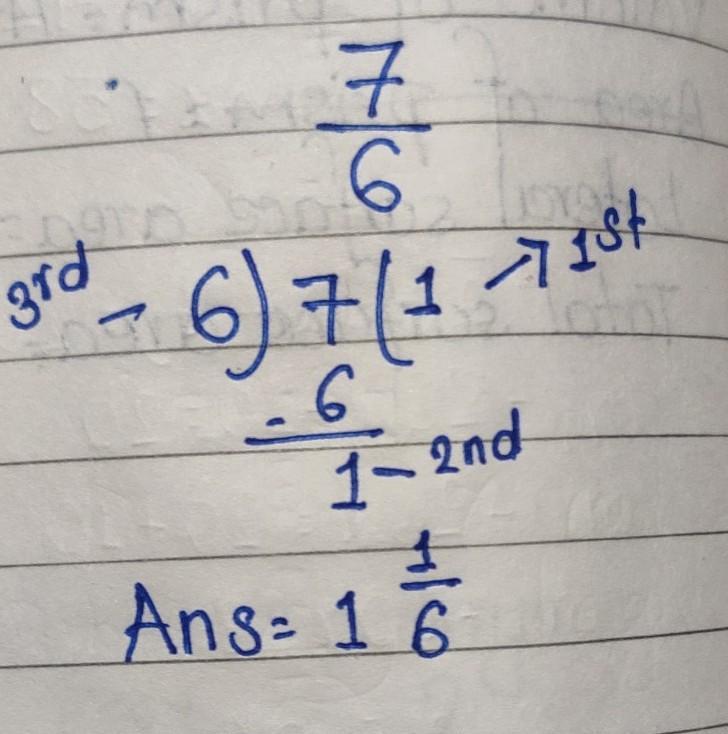 7
6
3rd - 6) 7 (1 → 1st
- 6
1 - 2nd
Ans = 1 1/6